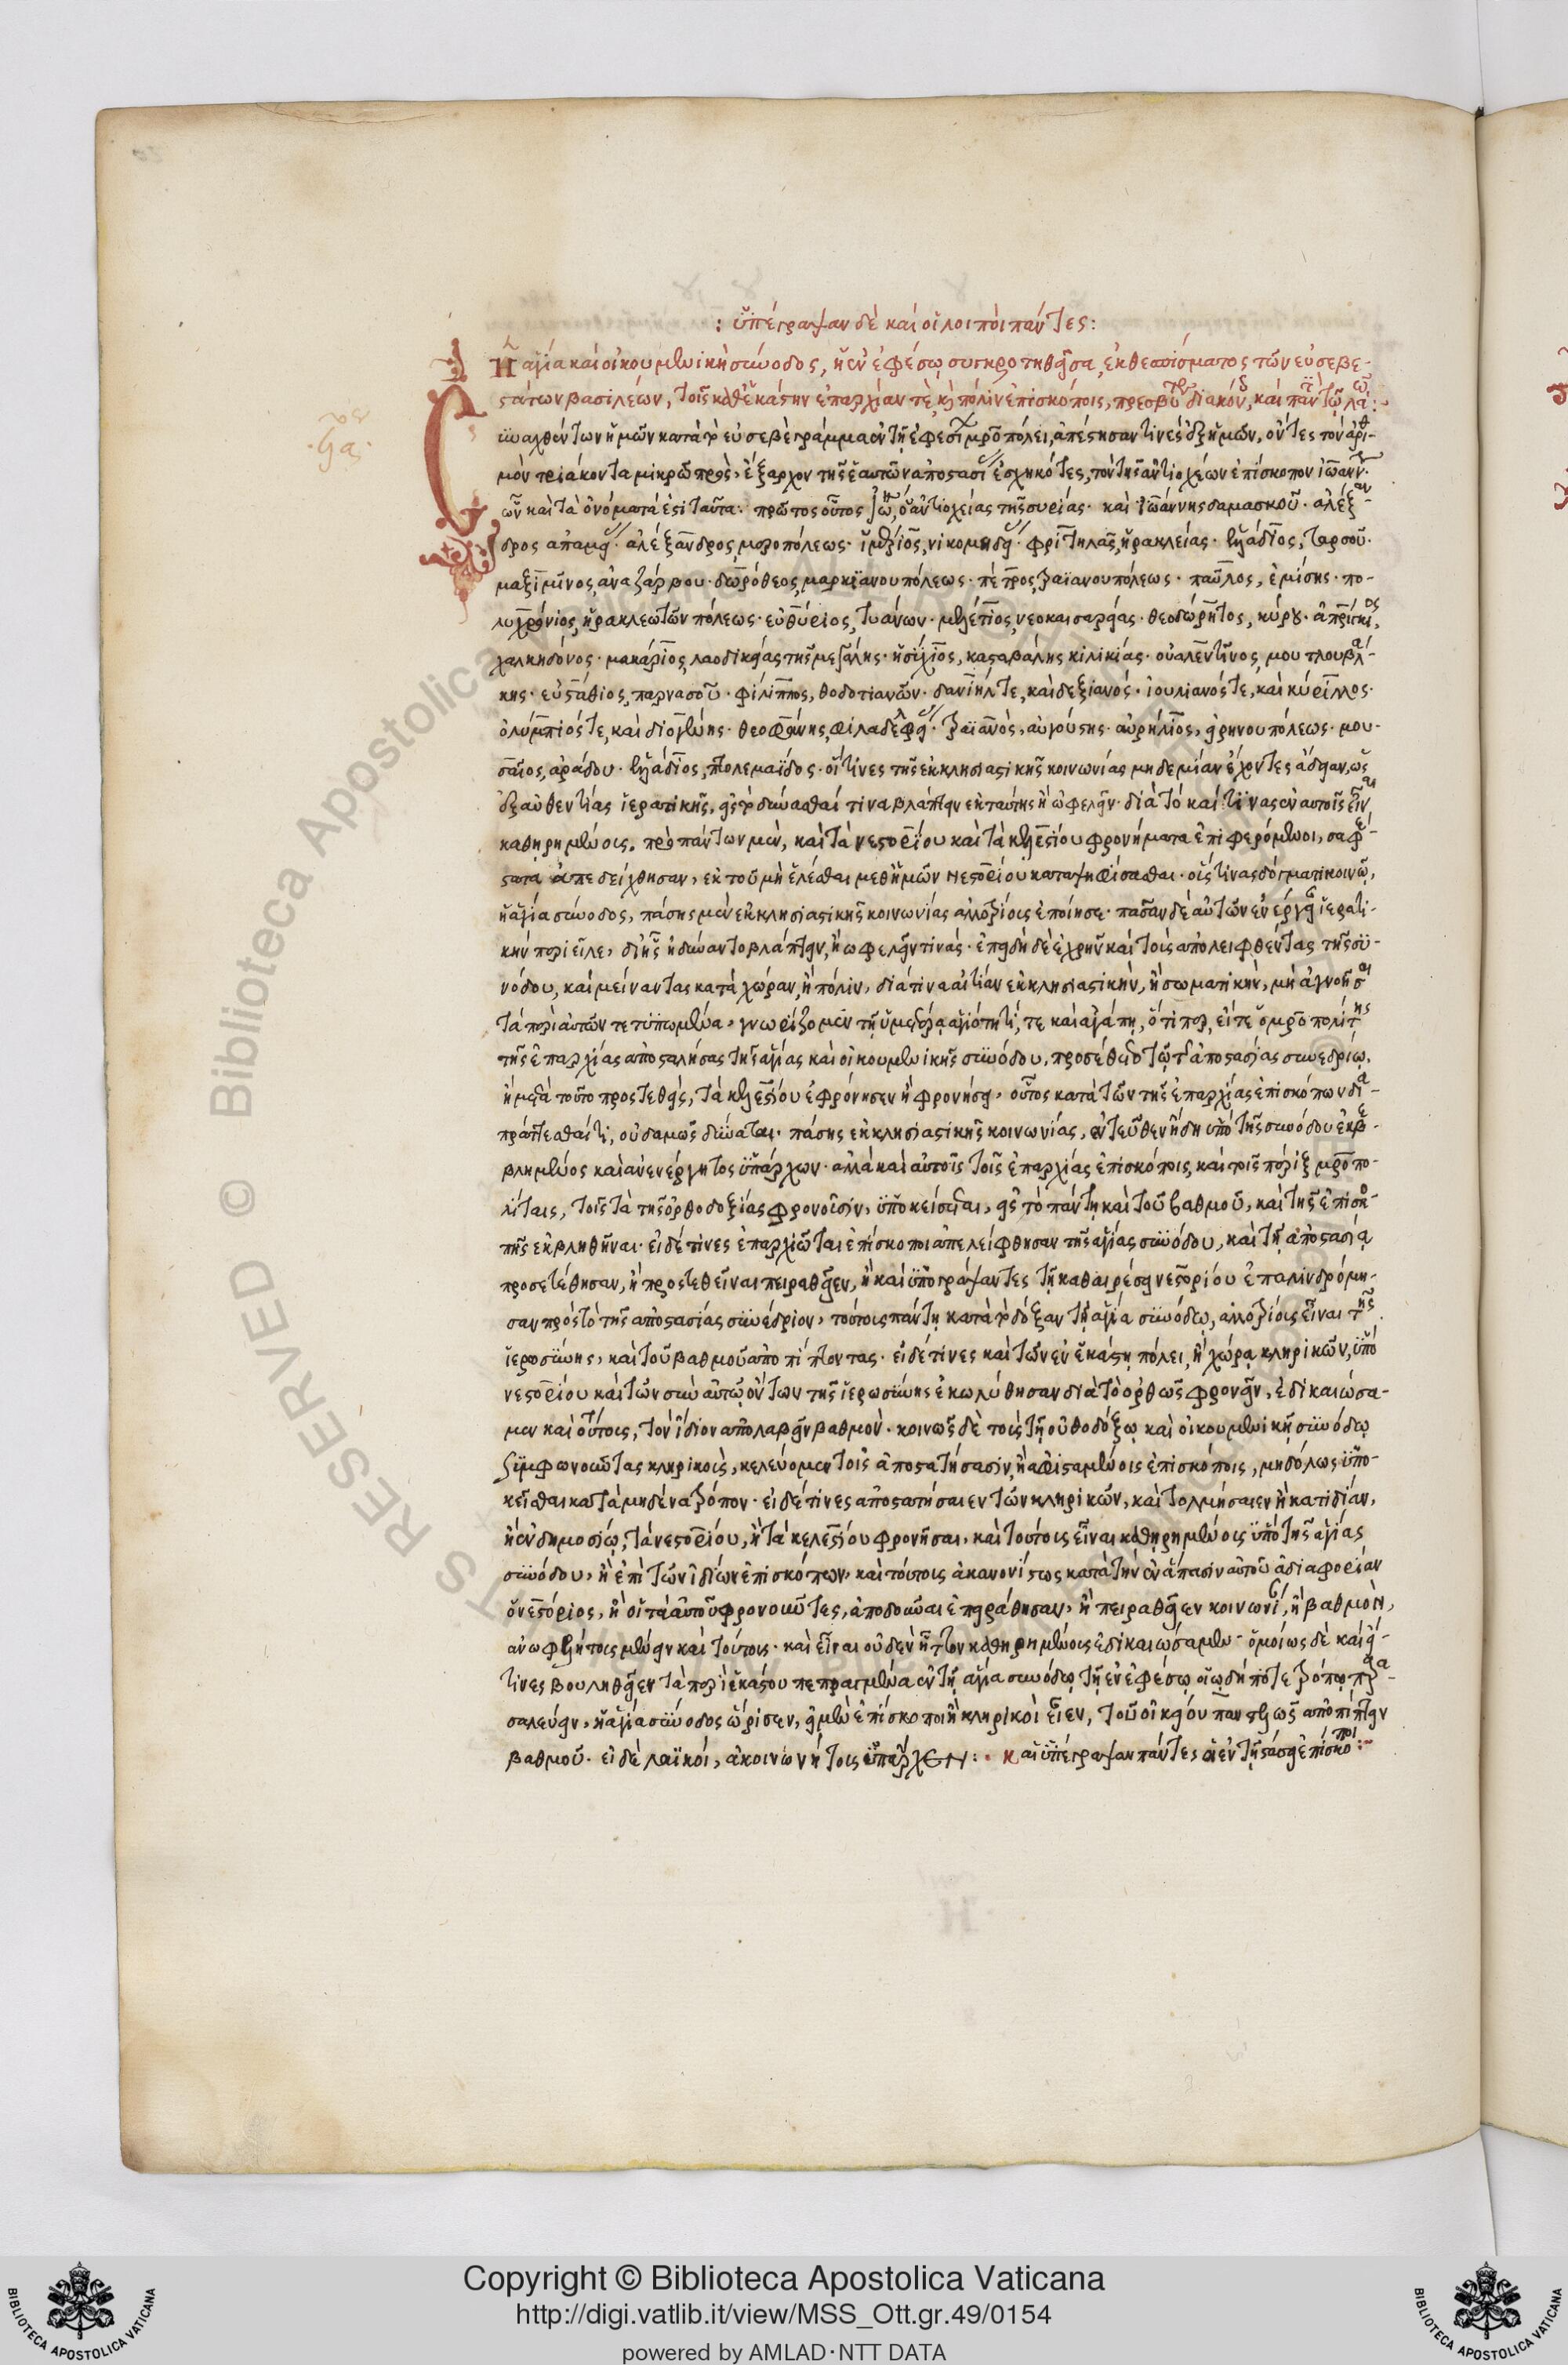 : ὑπέγραψαν δὲ καὶ οἱ λοιποὶ πάντες :
Ἡ ἁγία καὶ οἰκουμενικὴ σύνοδος, ἡ ἐν ἐφέσω συγκροτηθεῖσα, ἐκ θεσπίσματος τῶν εὐσεβε-
στάτων βασιλέων, τοῖς καθ' ἑκάστην ἐπαρχίαν τὲ, καὶ πόλιν ἐπισκόποις, πρεσβυτ διακόν, καὶ παντὶ τῶ λαῶ :
Συναχθέντων ἡμῶν κατὰ τὸ εὐσεβὲς γράμμα ἐν τῇ ἐφεσίων μητροπόλει, ἀπέστησαν τινὲς ἐξ ἡμῶν, ὄντες τὸν ἀριθ-
μὸν τριάκοντα μικρῶ πρὸς, ἔξαρχον τῆς ἑαυτῶν ἀποστασί ἐσχηκότες, τὸν τῆς ἀντιοχέων ἐπίσκοπον ἰωάνν·
ὧν καὶ τὰ ὀνόματά ἐστι ταῦτα· πρῶτος οὗτος ἰω, ὁ ἀντιοχείας τῆς συρίας· καὶ ἰωάννης δαμασκοῦ· ἀλέξαν-
δρος ἀπαμεί· ἀλέξανδρος, μεροπόλεως· ἱμέριος, νικομηδεί· φριτηλας, ἡρακλείας· ἑλλάδιος, ταρσοῦ·
μαξιμῖνος, ἀναζάρβου· δωρόθεος, μαρκιανουπόλεως· πέτρος, τραϊανουπόλεως· παῦλος, ἐμίσης· πο-
λυχρόνιος, ἡρακλεωτῶν πόλεως· εὐθύριος, τυάνων· μελέτιος, νεοκαισαρείας· θεοδώρητος, κύρου· ἀπρίγκιος,
χαλκηδόνος· μακάριος, λαοδικείας τῆς μεγάλης· ἡσίχιος, κασταβάλης κιλικίας· οὐαλεντῖνος, μουτλουβλά-
κης· εὐστάθιος, παρνασοῦ· φίλιππος, θοδοτιανῶν· δανιήλ τε, καὶ δεξιανός· ἰουλιανός τε, καὶ κύριλλος·
ὀλύμπιός τε, καὶ διογένης· θεοφάνης, φιλαδελφεί· τραϊανὸς, αὐγούστης· αὐρήλιος, εἰρηνουπόλεως· μου-
σαῖος, ἀράδου· ἑλλάδιος, πτολεμαΐδος· οἵτινες τῆς ἐκκλησιαστικῆς κοινωνίας μηδεμίαν ἔχοντες ἄδειαν, ὡς
ἐξ αὐθεντίας ἱερατικῆς, εἰς τὸ δύνασθαί τινα βλάπτειν ἐκ ταύτης ἢ ὠφελεῖν· διὰ τό καί τινας ἐν αὐτοῖς εἶναι
καθῃρημένους. πρὸ πάντων μὲν, καὶ τὰ νεστορίου καὶ τὰ κελεστίου φρονήματα ἐπιφερόμενοι, σαφέ-
στατα ἀπεδείχθησαν, ἐκ τοῦ μὴ ἑλέσθαι μεθ' ἡμῶν Νεστορίου καταψηφίσασθαι· οὕστινας δόγματι κοινῶ,
ἡ ἁγία σύνοδος, πάσης μὲν ἐκκλησιαστικῆς κοινωνίας ἀλλοτρίους ἐποίησε· πᾶσαν δὲ αὐτῶν ἐνέργειαν ἱερατι-
κὴν περιεῖλε, δι' ἧς ἠδύναντο βλάπτειν, ἢ ὠφελεῖν τινάς· ἐπειδὴ δὲ ἐχρῆν καὶ τοὺς ἀπολειφθέντας τῆς συ-
νόδου, καὶ μείναντας κατὰ χώραν, ἢ πόλιν, διά τινα αἰτίαν ἐκκλησιαστικὴν, ἢ σωματικὴν, μὴ ἀγνοῆσαι
τὰ περὶ αὐτῶν τετυπωμένα, γνωρίζομεν τῇ ὑμετέρα ἁγιότητί, τε καὶ ἀγάπη, ὅτι περ, εἴτε ὁ μητροπολίτης
τῆς ἐπαρχίας ἀποστατήσας τῆς ἁγίας καὶ οἰκουμενικῆς συνόδου, προσέθετο τῷ τῆς ἀποστασίας συνεδρίω,
ἢ μετὰ τοῦτο προστεθείη, τὰ κελεστίου ἐφρόνησεν ἢ φρονήσει, οὗτος κατὰ τῶν τῆς ἐπαρχίας ἐπισκόπων δια-
πράττεσθαί τι, οὐδαμῶς δύναται· πάσης ἐκκλησιαστικῆς κοινωνίας, ἐντεῦθεν ἤδη ὑπὸ τῆς συνόδου ἐκβε-
βλημένος καὶ ἀνενέργητος ὑπάρχων· ἀλλὰ καὶ αὐτοῖς τοῖς ἐπαρχίας ἐπισκόποις, καὶ τοῖς πέριξ μητροπο-
λίταις, τοῖς τὰ τῆς ὀρθοδοξίας φρονοῦσιν, ὑποκείσεται, εἰς τὸ πάντη καὶ τοῦ βαθμοῦ, καὶ τῆς ἐπισκο-
πῆς ἐκβληθῆναι· εἰ δέ τινες ἐπαρχιῶται ἐπίσκοποι ἀπελείφθησαν τῆς ἁγίας συνόδου, καὶ τῇ ἀποστασίᾳ
προσετέθησαν, ἢ προστεθεῖναι πειραθεῖεν, ἢ καὶ ὑπογράψαντες τῇ καθαιρέσει νεστορίου ἐπαλινδρόμη-
σαν πρὸς τὸ τῆς ἀποστασίας συνέδριον, τούτους πάντη κατὰ τὸ δόξαν τῇ ἁγία συνόδω, ἀλλοτρίους εἶναι τῆς
ἱερωσύνης, καὶ τοῦ βαθμοῦ ἀποπίπτοντας· εἰ δέ τινες καὶ τῶν ἐν ἑκάστη πόλει, ἢ χώρα κληρικῶν, ὑπὸ
νεστορίου καὶ τῶν σὺν αὐτῷ ὄντων τῆς ἱερωσύνης ἐκωλύθησαν διὰ τὸ ὀρθῶς φρονεῖν, ἐδικαιώσα-
μεν καὶ τούτους, τὸν ἴδιον ἀπολαβεῖν βαθμόν· κοινῶς δὲ τοὺς τῇ ὀθοδόξω καὶ οἰκουμενικῇ συνόδω
συμφωνοῦντας κληρικοὺς, κελεύομεν τοῖς ἀποστατήσασιν, ἢ ἀφισταμένοις ἐπισκόποις, μηδόλως ὑπο-
κεῖσθαι κατὰ μηδένα τρόπον· εἰ δέ τινες ἀποστατήσαιεν τῶν κληρικῶν, καὶ τολμήσαιεν ἢ κατιδίαν,
ἢ ἐν δημοσίω, τὰ νεστορίου, ἢ τὰ κελεστίου φρονῆσαι, καὶ τούτους εἶναι καθῃρημένους ὑπὸ τῆς ἁγίας
συνόδου, ἢ ἐπὶ τῶν ἰδίων ἐπισκόπων, καὶ τούτοις ἀκανονίστως κατὰ τὴν ἐν ἅπασιν αὐτοῦ ἀδιαφορίαν
ὁ νεστόριος, ἢ οἱ τὰ αὐτοῦ φρονοῦντες, ἀποδοῦναι ἐπειράθησαν, ἢ πειραθεῖεν κοινωνί, ἢ βαθμὸΝ,
ἀνωφελήτους μένειν καὶ τούτους· καὶ εἶναι οὐδὲν ἧττον καθῃρημένους ἐδικαιώσαμεν· ὁμοίως δὲ καὶ εἴ-
τινες βουληθεῖεν τὰ περὶ ἑκάστου πεπραγμένα ἐν τῇ ἁγία συνόδω τῇ ἐν ἐφέσω οἱωδήποτε τρόπω παρα-
σαλεύειν, ἡ ἁγία σύνοδος ὥρισεν, εἰ μὲν ἐπίσκοποι ἢ κληρικοὶ εἶεν, τοῦ οἰκείου παντελῶς ἀποπίπτειν
βαθμοῦ· εἰ δὲ λαϊκοί, ἀκοινωνήτους ὑπάρχΕΝ :· Καὶ ὑπέγραψαν πάντες οἱ ἐν τῇ τάσει ἐπίσκοποι :~